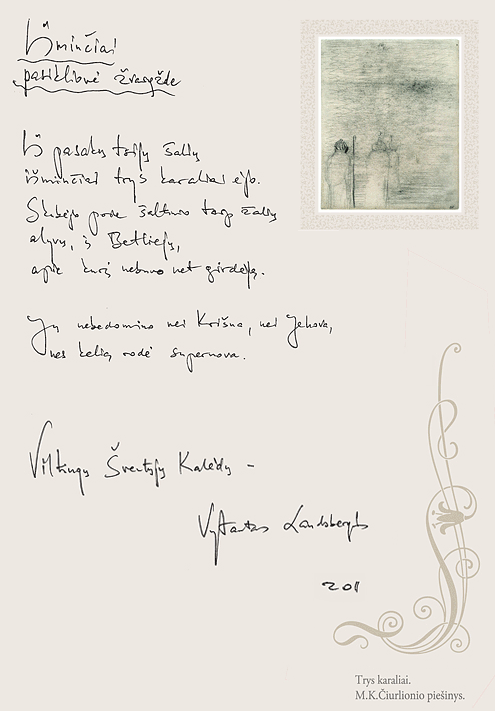 Išminčiai
patiklinė žvaigždė
Iš pasakų trijų šalių
išminčiai trys karaliai ėjo.
Skubėjo prie šaltinio tarp žalių
alyvų, į Betliejų,
apie kurį nebuvo net girdėję.
Jų nebedomino nei Krišna, nei Jehova,
nes kelią rodė supernova.
Viltingų Šventųjų Kalėdų –
Vytautas Landsbergis
2011
Trys karaliai.
M.K.Čiurlionio piešinys.